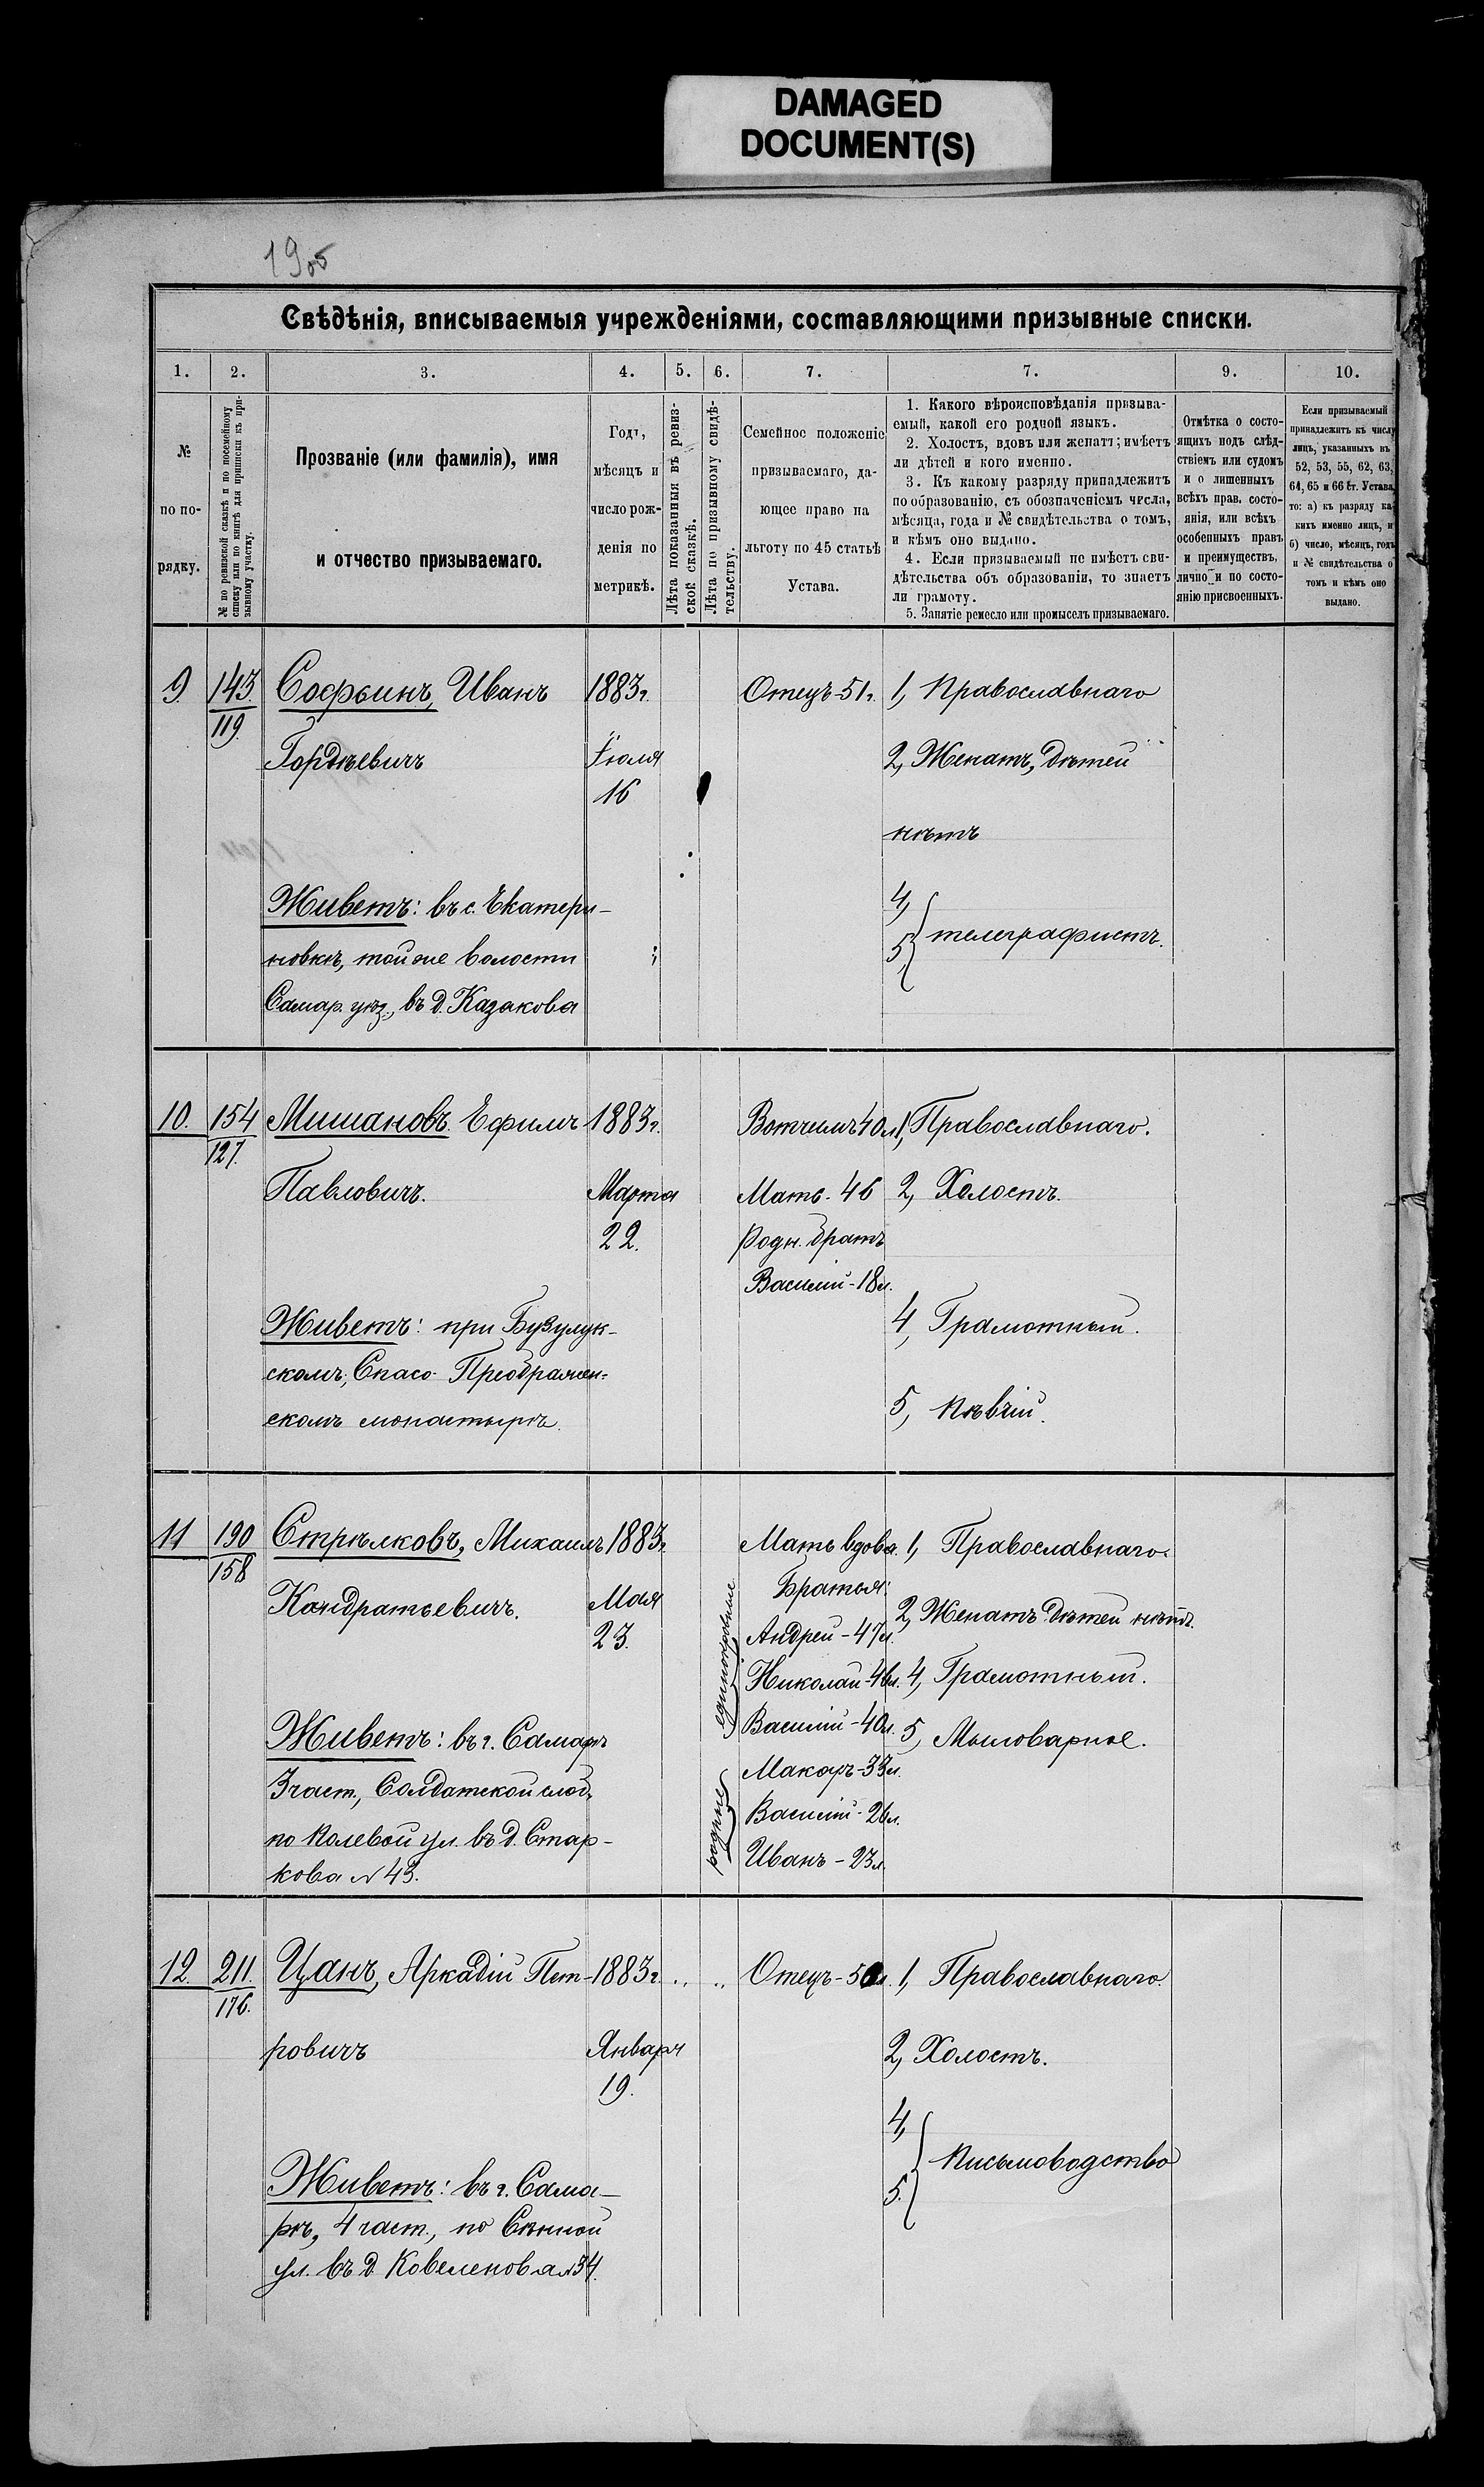 DAMAGED
DOCUMENT(S)
1905
Свѣдѣнія, вписываемыя учрежденіями, составляющими призывные списки.
1. 2. 3. 4. 5. 6. 7. 7. 9. 10.
№
по по-
рядку.
№ по ревизской сказкѣ и по посемейному
списку или по книгѣ для приписки къ при-
зывному участку.
Прозваніе (или фамилія), имя
и отчество призываемаго.
Годъ,
мѣсяцъ и
число рож-
денія по
метрикѣ.
Лѣта показанныя въ ревиз-
ской сказкѣ.
Лѣта по призывному свидѣ-
тельству.
Семейное положеніе
призываемаго, да-
ющее право на
льготу по 45 статьѣ
Устава.
1. Какого вѣроисповѣданія призыва-
емый, какой его родной языкъ.
2. Холостъ, вдовъ или женатъ; имѣетъ
ли дѣтей и кого именно.
3. Къ какому разряду принадлежитъ
по образованію, съ обозначеніемъ числа,
мѣсяца, года и № свидѣтельства о томъ,
и кѣмъ оно выдано.
4. Если призываемый не имѣетъ сви-
дѣтельства объ образованіи, то знаетъ
ли грамоту.
5. Занятіе ремесло или промыселъ призываемаго.
Отмѣтка о состо-
ящихъ подъ слѣд-
ствіемъ или судомъ
и о лишенныхъ
всѣхъ прав. состо-
янія, или всѣхъ
особенныхъ правъ
и преимуществъ,
лично и по состо-
янію присвоенныхъ.
Если призываемый
принадлежитъ къ числу
лицъ, указанныхъ въ
52, 53, 55, 62, 63,
64, 65 и 66 ст. Устава,
то: а) къ разряду ка-
кихъ именно лицъ, и
б) число, мѣсяцъ, годъ
и № свидѣтельства о
томъ и кѣмъ оно
выдано.
9. 143 Софьинъ, Иванъ 1883г. Отецъ-51г. 1, Православнаго
119.
Гордѣевичъ Іюля 2, Женатъ, дѣтей
16
нѣтъ
Живетъ: въ с. Екатери-
новкѣ, той же волости
Самар. уѣз., въ д. Казакова
4,
5, телеграфистъ.
10. 154 Мишановъ Ефимъ 1883г. Вотчимъ 40л 1, Православнаго.
127.
Павловичъ. Марта Мать-46 2, Холостъ.
22. Родн. братъ
Василій-18л.
Живетъ: при Бузулук-
скомъ, Спасо-Преображен-
скомъ монастырѣ.
4, Грамотный.
5, Пѣвчій.
11 190 Стрѣлковъ, Михаилъ 1883г. Мать вдова. 1, Православнаго
158
Братья:
Кондратьевичъ. Мая 2, Женатъ дѣтей нѣтъ.
23. единокровные
Андрей-47л.
Николай-46л. 4, Грамотный.
Василій-40л. 5, Мыловарное.
родные
Макаръ-33л.
Василій-26л.
Иванъ-23л.
Живетъ: въ г. Самарѣ
3 част., Солдатской слоб.
по Полевой ул. въ д. Стар-
кова № 43.
12. 211. Цанъ, Аркадій Пет- 1883г. .. .. Отецъ-50л. 1, Православнаго.
176.
ровичъ Января 2, Холостъ.
19.
4,
5. Письмоводство
Живетъ: въ г. Сама-
рѣ, 4 част., по Сѣнной
ул. въ д. Ковеленова №34.